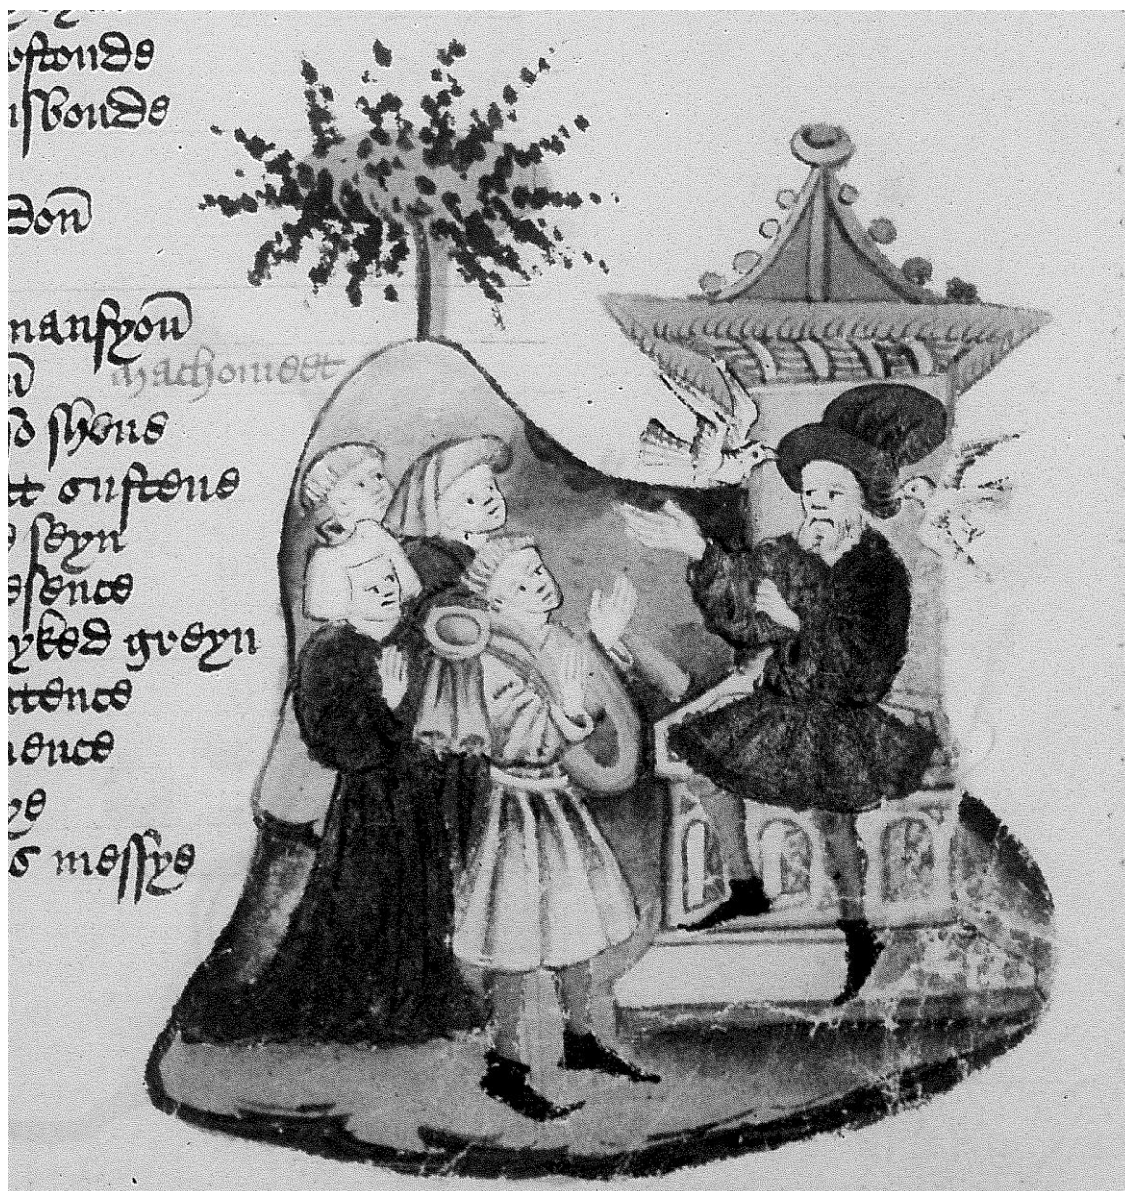 ostonde
usbonde
don̄
mansyon̄
machomeet
so shene
tt sustene
e seyn
esence
yked greyn
ttence
ience
ye
s messye